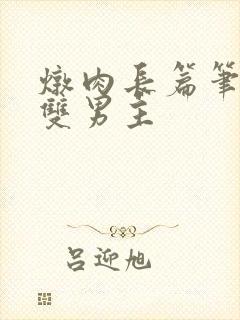 燉肉長篇筆
雙男主
呂迎旭